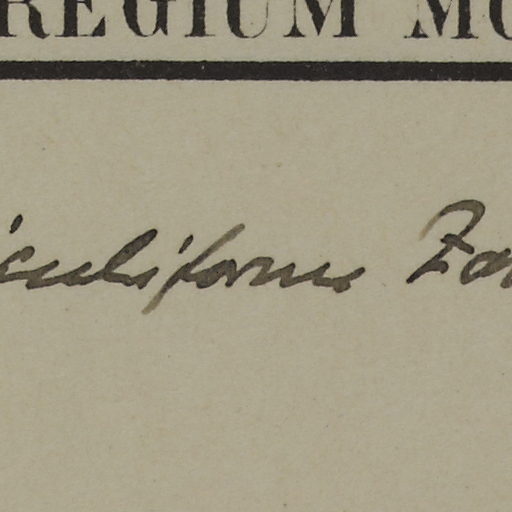 REGIUM MO
iculiformis Za